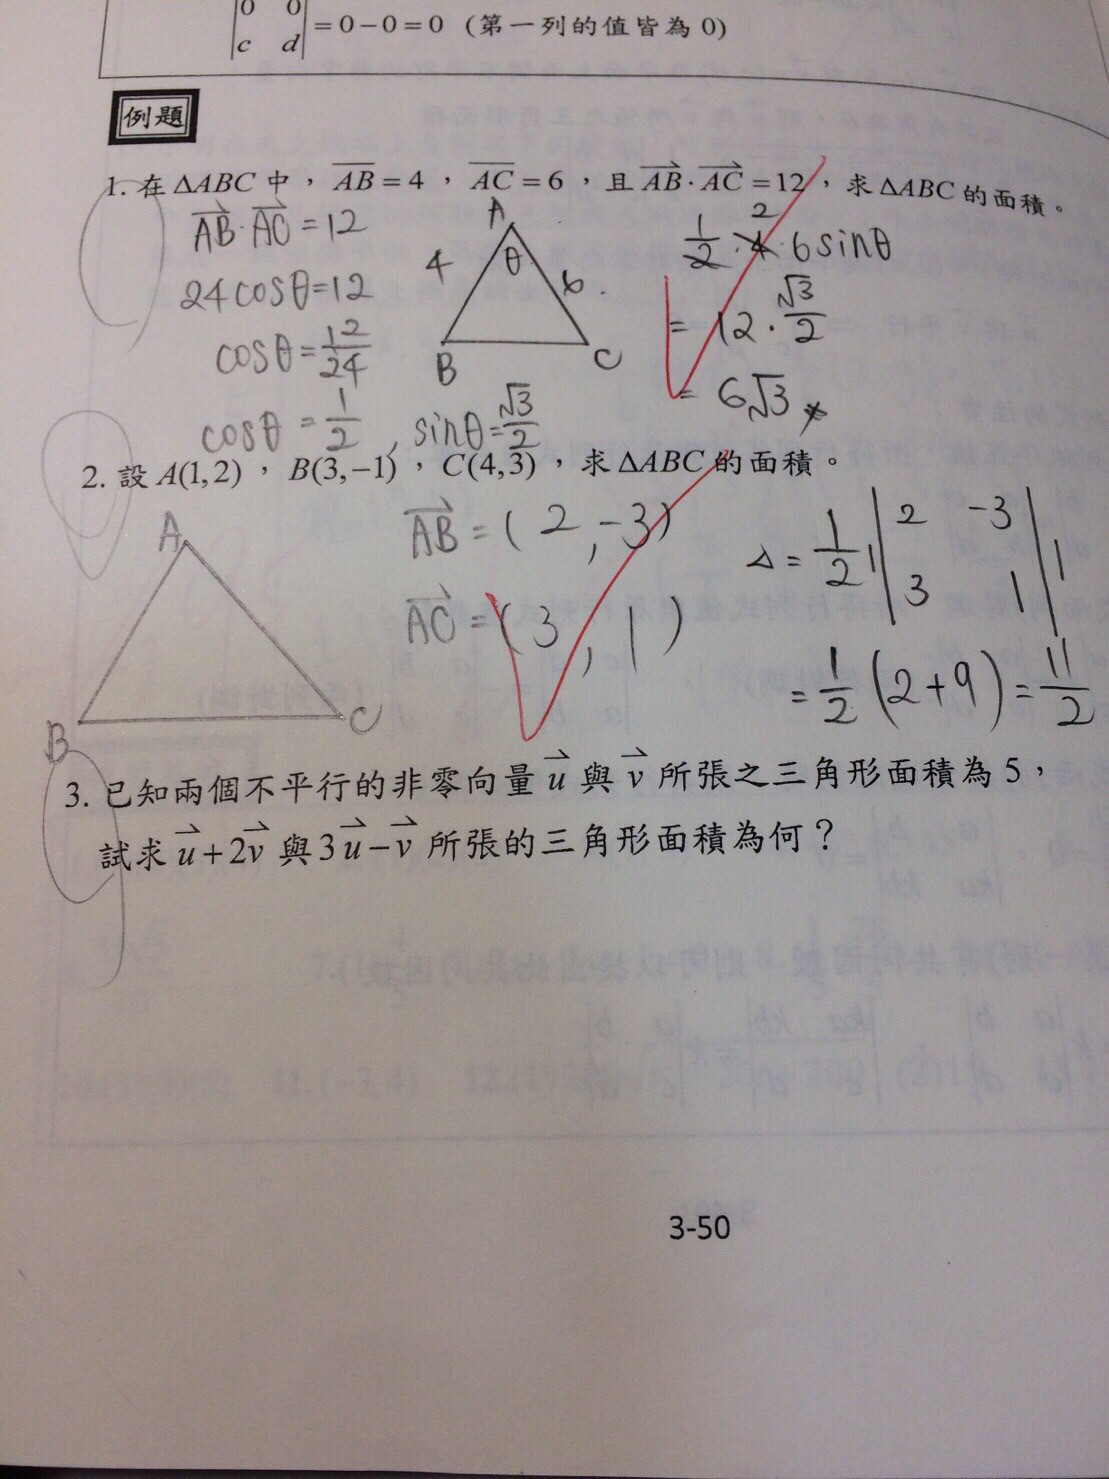 |0 0|
|c d| =0−0=0 (第一列的值皆為 0)
例題
1. 在 ΔABC 中，AB=4，AC=6，且 AB·AC=12，求 ΔABC 的面積。
AB·AC=12
24cosθ=12
cosθ=12/24
cosθ=1/2, sinθ=√3/2
A
θ
4
6
B
C
1/2·4·6sinθ
2
=12·√3/2
=6√3
2. 設 A(1,2)，B(3,−1)，C(4,3)，求 ΔABC 的面積。
A
B
C
AB=(2,−3)
AC=(3,1)
Δ=1/2||2 −3|
|3 1||
=1/2(2+9)=11/2
3. 已知兩個不平行的非零向量 u 與 v 所張之三角形面積為 5，
試求 u+2v 與 3u−v 所張的三角形面積為何？
3-50